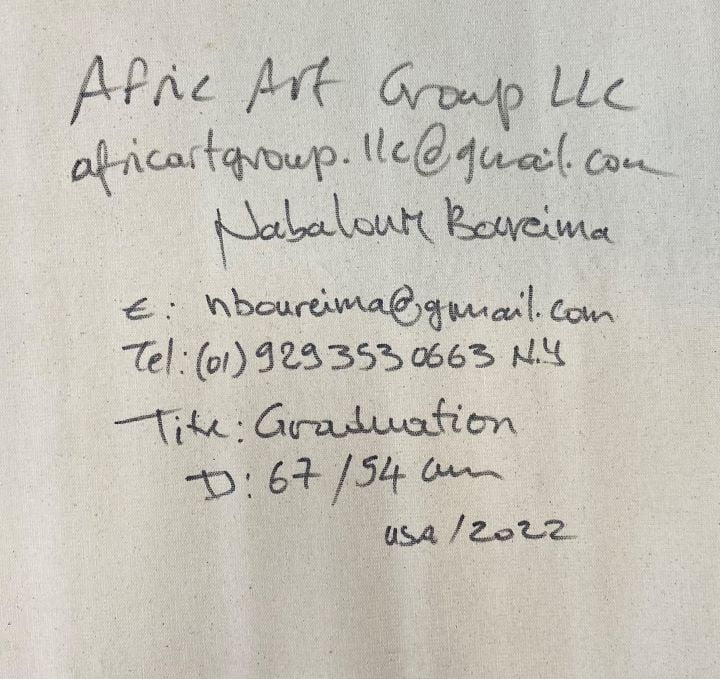 Afric Art Group LLC
africartgroup.llc@gmail.com
Nabaloum Boureima
E: nboureima@gmail.com
Tel: (01) 929 353 0663 N.Y
Title: Graduation
D: 67/54 cm
USA/2022